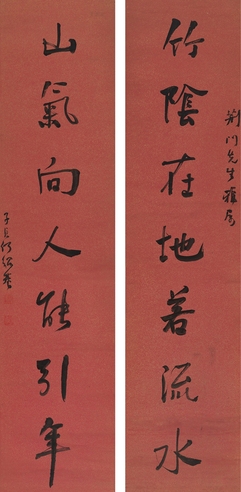 荊門先生雅屬
竹陰在地若流水
山氣向人能引年
子貞何紹基